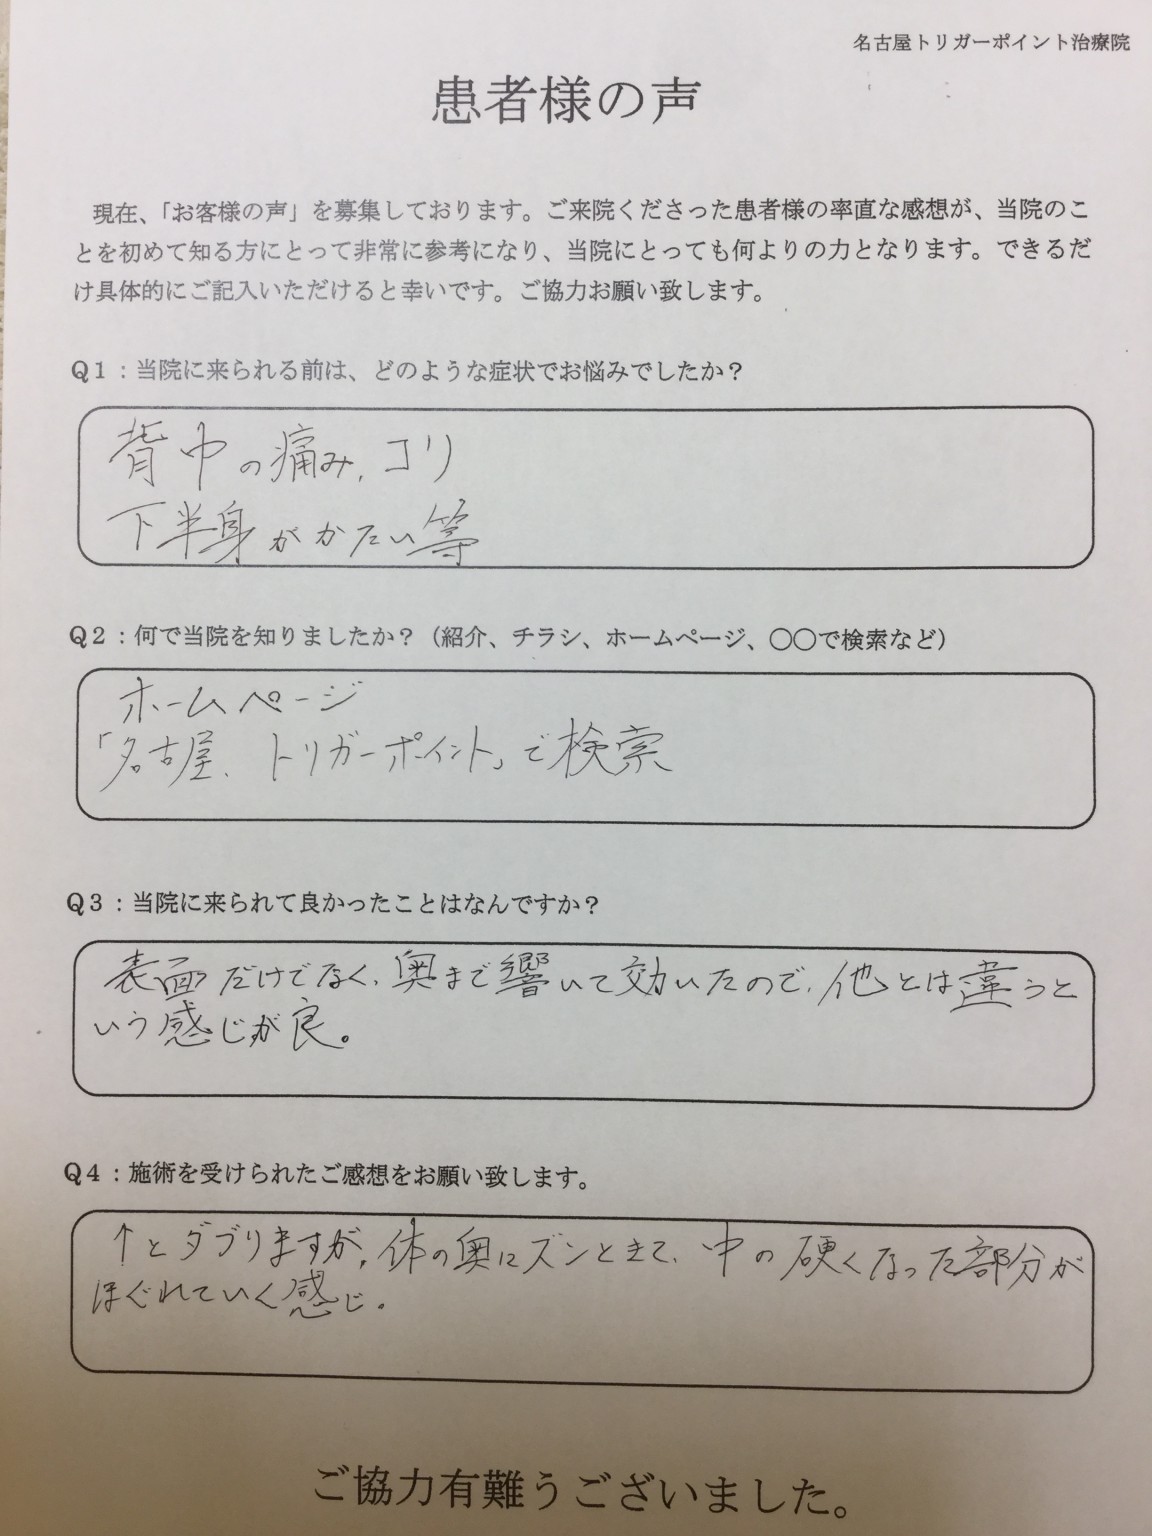 名古屋トリガーポイント治療院
患者様の声
現在、「お客様の声」を募集しております。ご来院くださった患者様の率直な感想が、当院のこ
とを初めて知る方にとって非常に参考になり、当院にとっても何よりの力となります。できるだ
け具体的にご記入いただけると幸いです。ご協力お願い致します。
Q1：当院に来られる前は、どのような症状でお悩みでしたか？
背中の痛み、コリ
下半身がかたい等
Q2：何で当院を知りましたか？（紹介、チラシ、ホームページ、〇〇で検索など）
ホームページ
「名古屋、トリガーポイント」で検索
Q3：当院に来られて良かったことはなんですか？
表面だけでなく、奥まで響いて効いたので、他とは違うと
いう感じが良。
Q4：施術を受けられたご感想をお願い致します。
↑とダブりますが、体の奥にズンときて、中の硬くなった部分が
ほぐれていく感じ。
ご協力有難うございました。